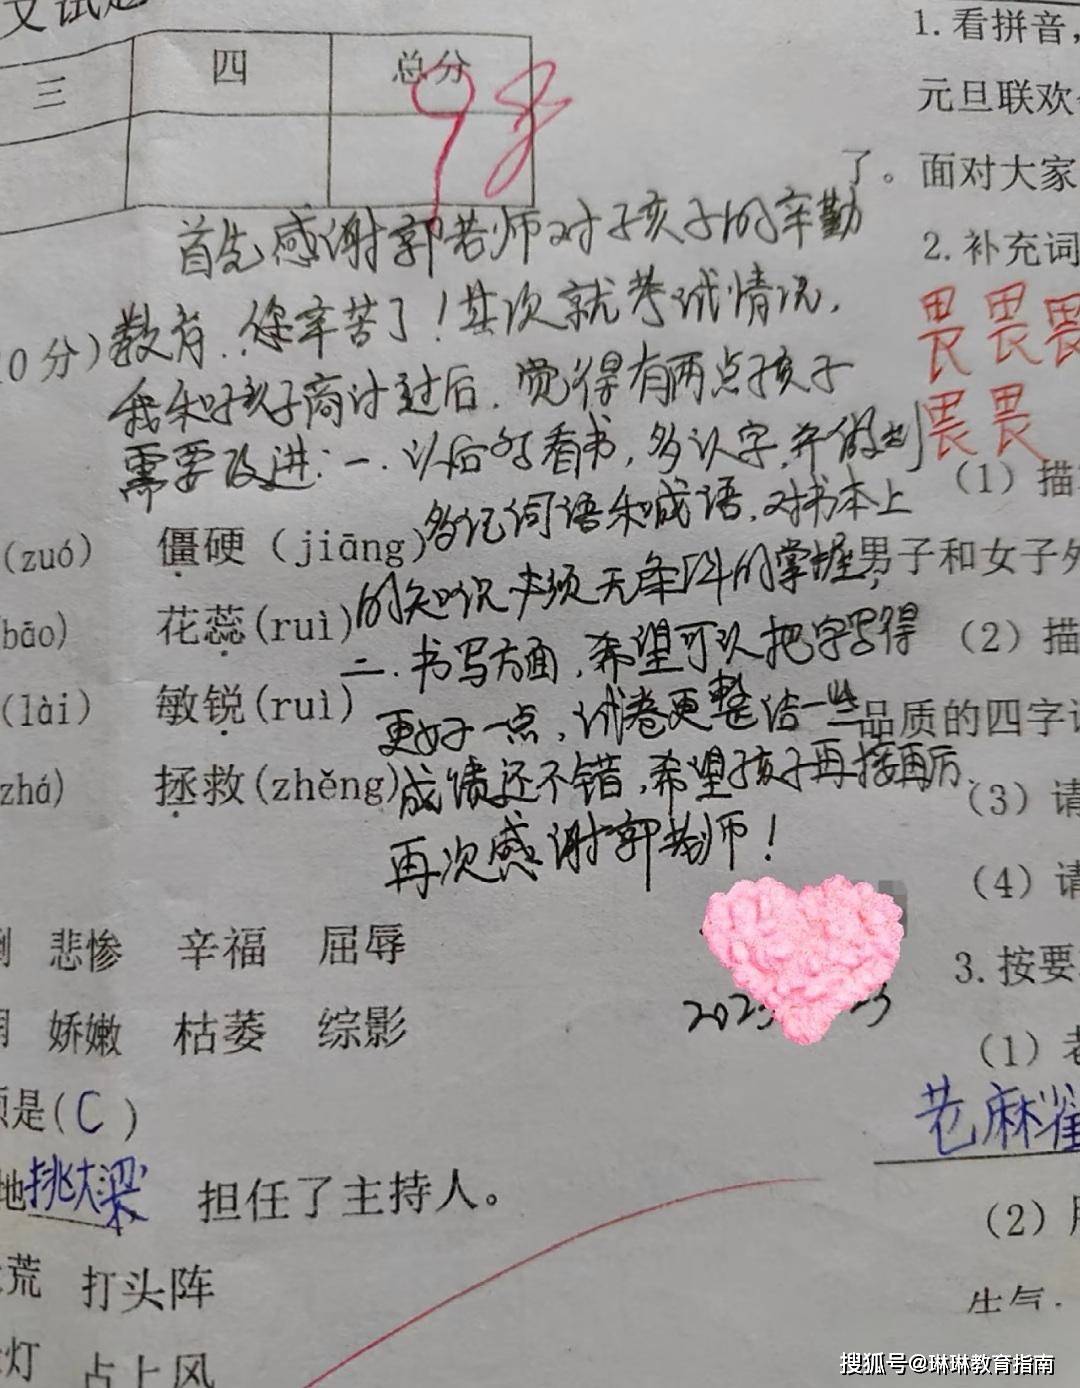 文试题
三 四 总分
98
首先感谢郭老师对孩子的辛勤
教育，您辛苦了！其次就考试情况，
我和孩子商计过后，觉得有两点孩子
需要改进：一、以后多看书，多认字，并做到
多记词语和成语，对书本上
的知识必须无条件的掌握，
二、书写方面，希望可以把字写得
更好一点，试卷更整洁一些
成绩还不错，希望孩子再接再厉
再次感谢郭老师！
0 分)
(zuó) 僵硬 (jiāng)
bāo) 花蕊(ruì)
(lài) 敏锐(ruì)
zhá) 拯救(zhěng)
悲惨 辛福 屈辱
娇嫩 枯萎 综影
是(C)
地挑大梁 担任了主持人。
荒 打头阵
灯 占上风
1. 看拼音，
元旦联欢
了。面对大家
2. 补充词
畏畏畏
畏畏
(1) 描
男子和女子外
(2) 描
品质的四字词
(3) 请
(4) 请
3. 按要
(1) 老
老麻雀
(2)
生气
搜狐号@琳琳教育指南